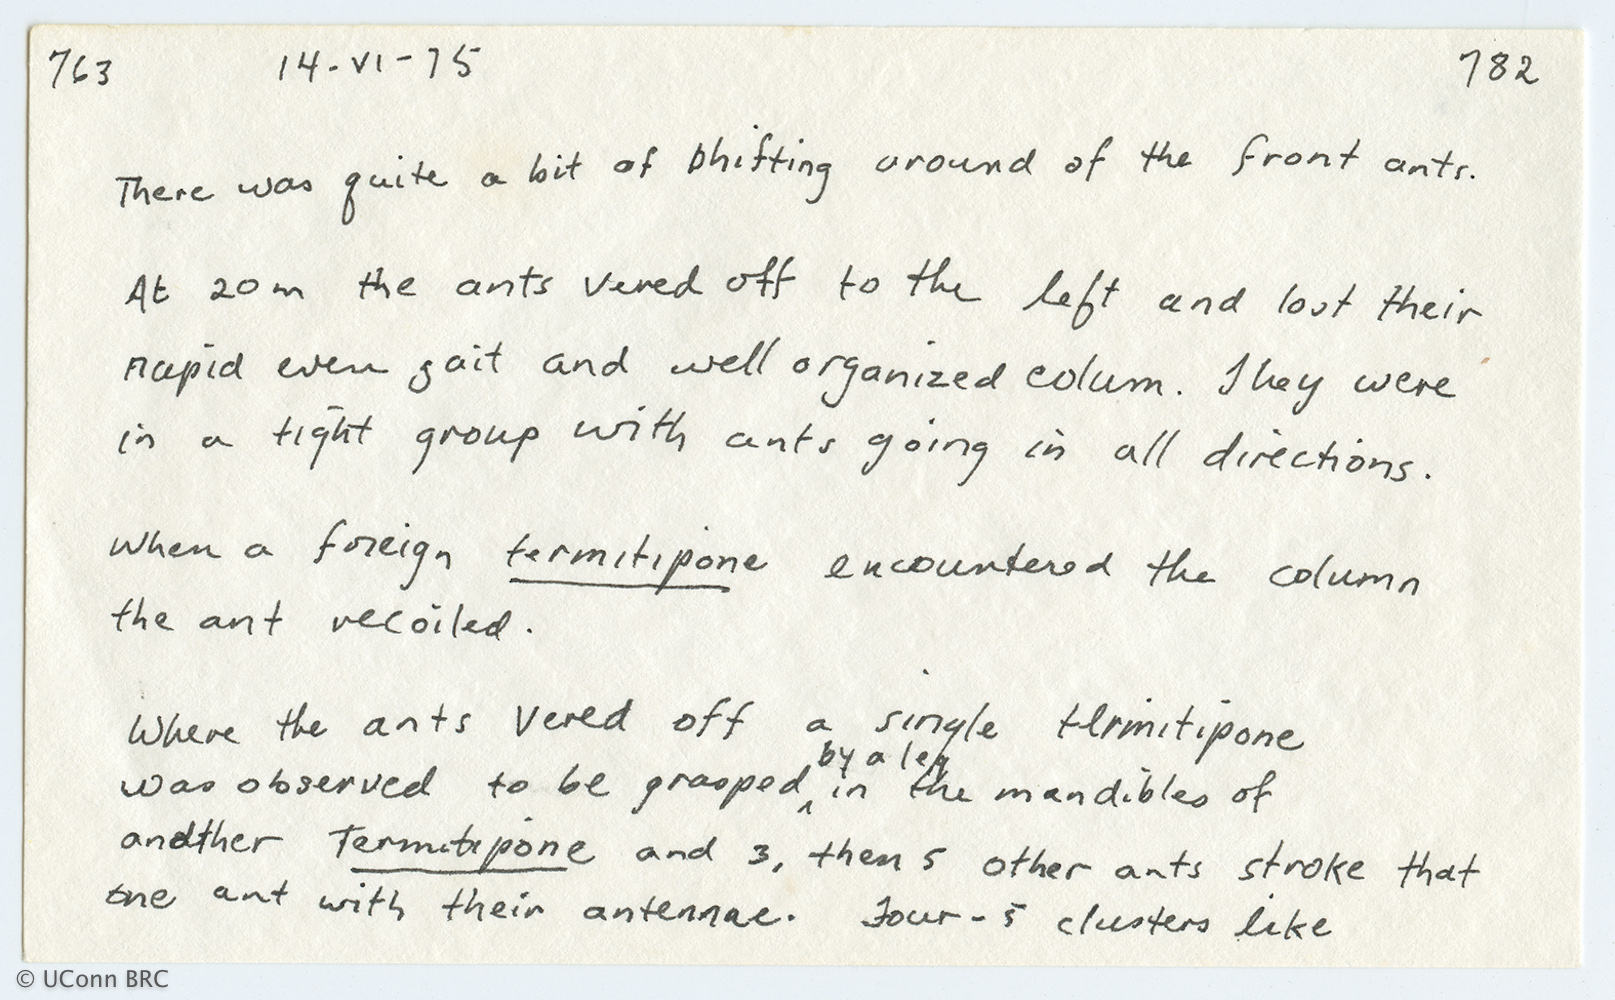 763 14-VI-75 782
There was quite a bit of shifting around of the front ants.
At 20m the ants vered off to the left and lost their
rapid even gait and well organized colum. They were
in a tight group with ants going in all directions.
When a foreign termitipone encountered the column
the ant recoiled.
Where the ants vered off a single termitipone
by a leg
was observed to be grasped ^ in the mandibles of
another Termitipone and 3, then 5 other ants stroke that
one ant with their antennae. Four-5 clusters like
© UConn BRC